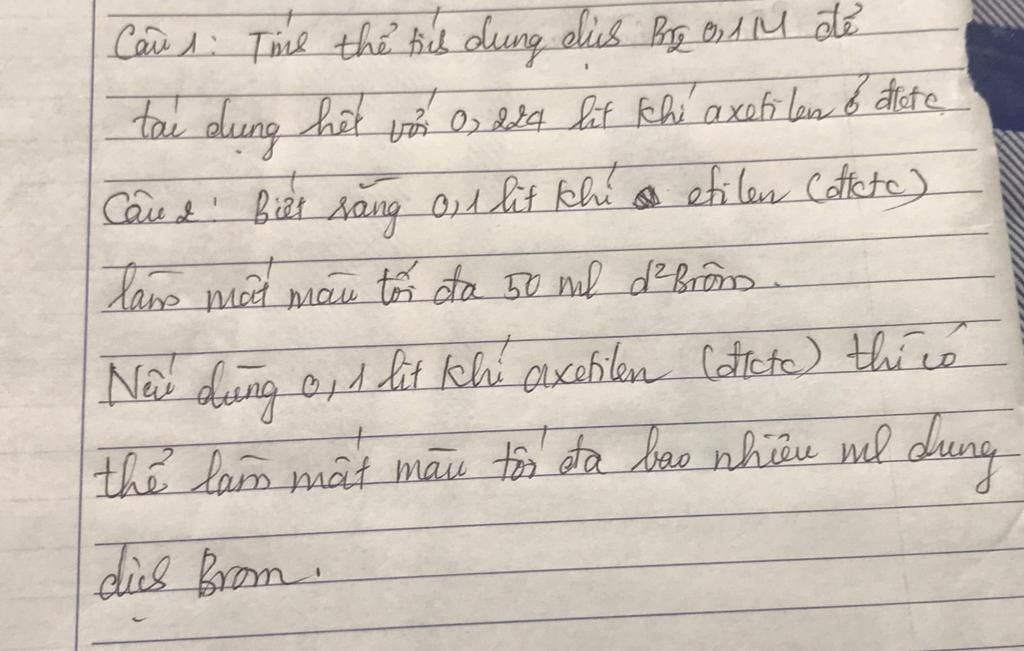 Câu 1: Tính thể tích dung dịch Br2 0,1M để
tác dụng hết với 0,224 lít khí axetilen ở đktc
Câu 2: Biết rằng 0,1 lít khí etilen (đktc)
làm mất màu tối đa 50 ml d² Brôm.
Nếu dùng 0,1 lít khí axetilen (đktc) thì có
thể làm mất màu tối đa bao nhiêu ml dung
dịch Brom.